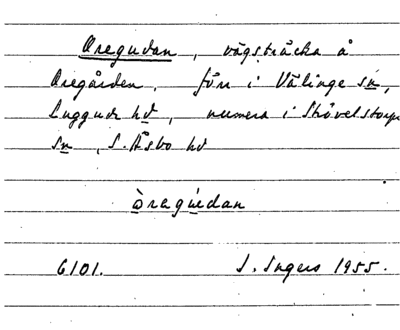 Oregudan, vägsträcka å
Oregården. förr i Välinge sn,
Luggude hd, numera i Stövelstorps
sn, S. Åsbo hd
òregúdan
6101. I. Ingers 1955.